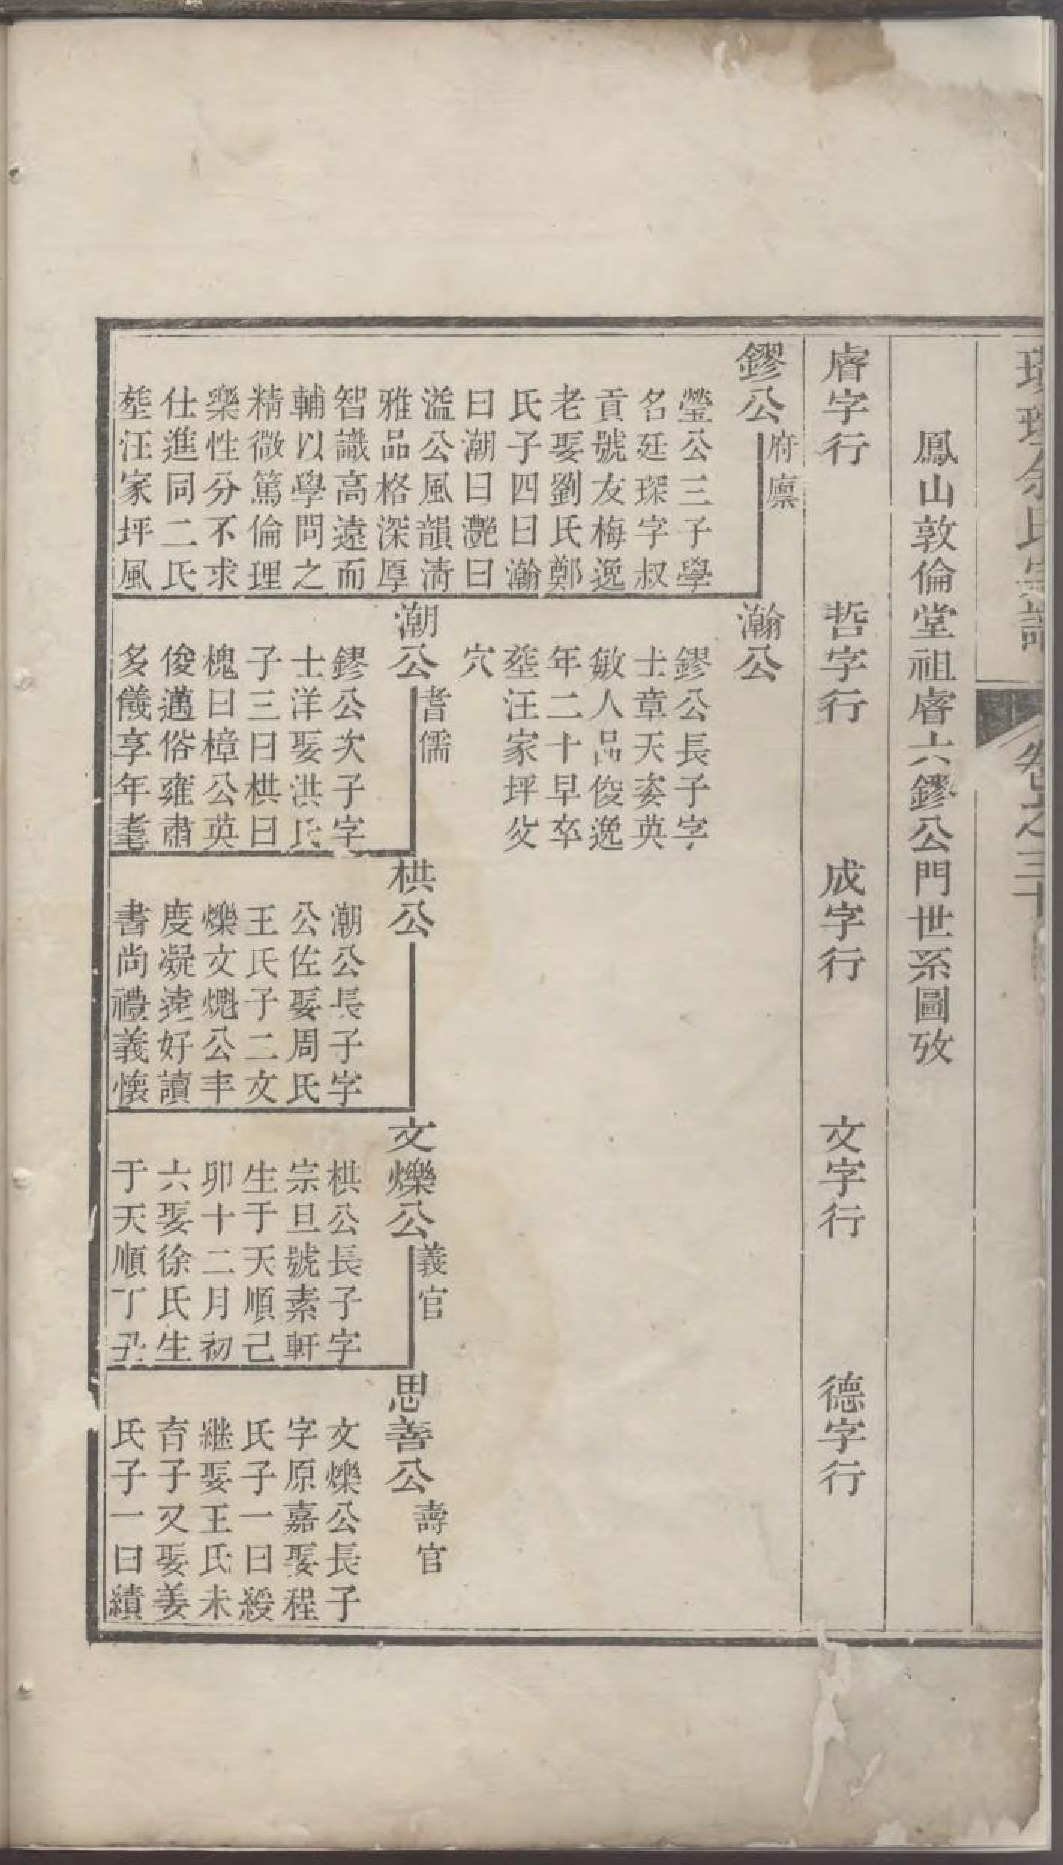 余氏宗譜
鳳山敦倫堂祖睿六鏐公門世系圖攷
睿字行
哲字行
成字行
文字行
德字行
鏐公
府廪
瑩公三子學
名廷琛字叔
貢號友梅逸
老娶劉氏鄭
氏子四曰瀚
曰潮曰灔曰
溢公風韻清
雅品格深厚
智識高遠而
輔以學問之
精微篤倫理
樂性分不求
仕進同二氏
塟汪家坪風
瀚公
鏐公長子字
士章天姿英
敏人品俊逸
年二十早卒
塟汪家坪父
穴
潮公
耆儒
鏐公次子字
士洋娶洪氏
子三曰栱曰
槐曰樟公英
俊邁俗雍肅
多儀享年耄
栱公
潮公長子字
公佐娶周氏
王氏子二文
爍文㷰公丰
度凝遠好讀
書尚禮義懷
文爍公
義官
栱公長子字
宗旦號素軒
生于天順己
卯十二月初
六娶徐氏生
于天順丁丑
思善公
壽官
文爍公長子
字原嘉娶程
氏子一曰綬
継娶王氏未
育子又娶姜
氏子一曰績